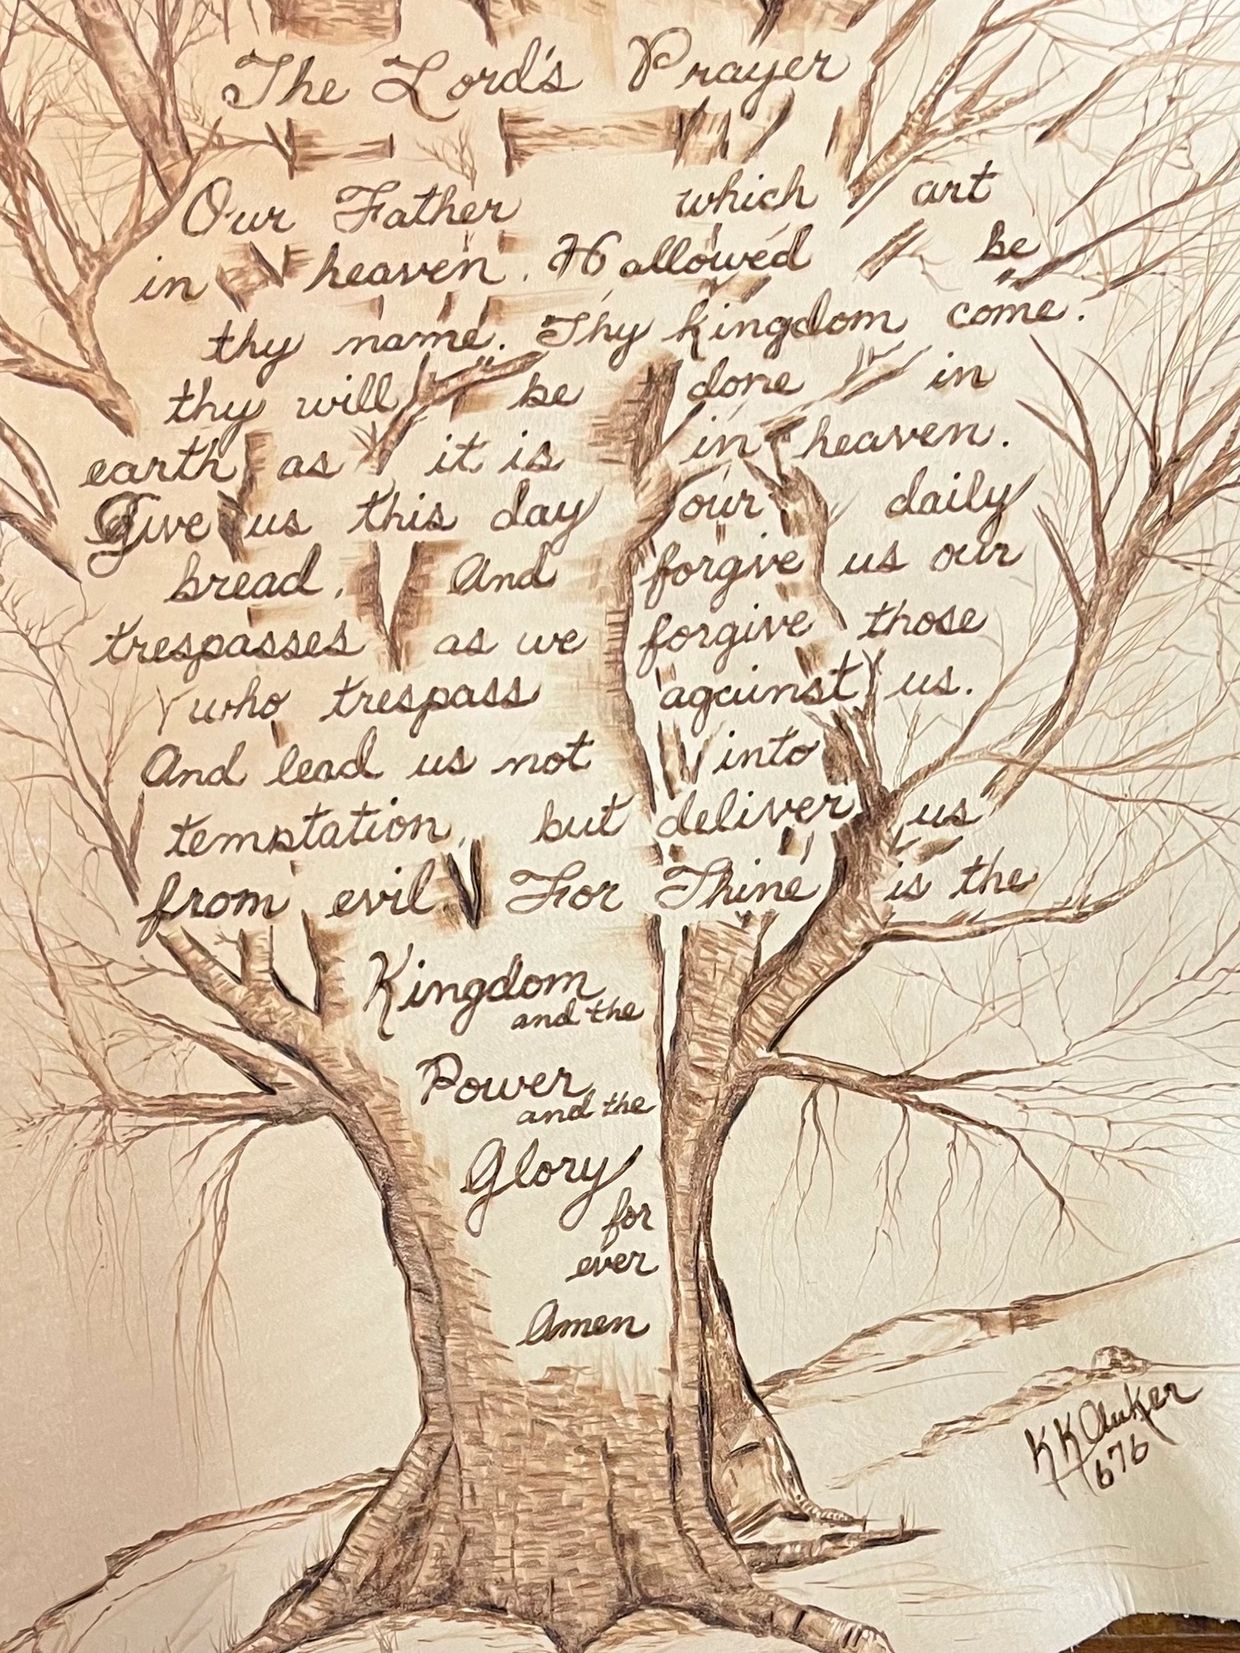 The Lord's Prayer
Our Father which art
in heaven. Hallowed be
thy name. Thy kingdom come.
thy will be done in
earth as it is in heaven.
Give us this day our daily
bread. And forgive us our
trespasses as we forgive those
who trespass against us.
And lead us not into
temptation, but deliver us
from evil. For Thine is the
Kingdom
and the
Power
and the
Glory
for
ever
Amen
K K Auker
676